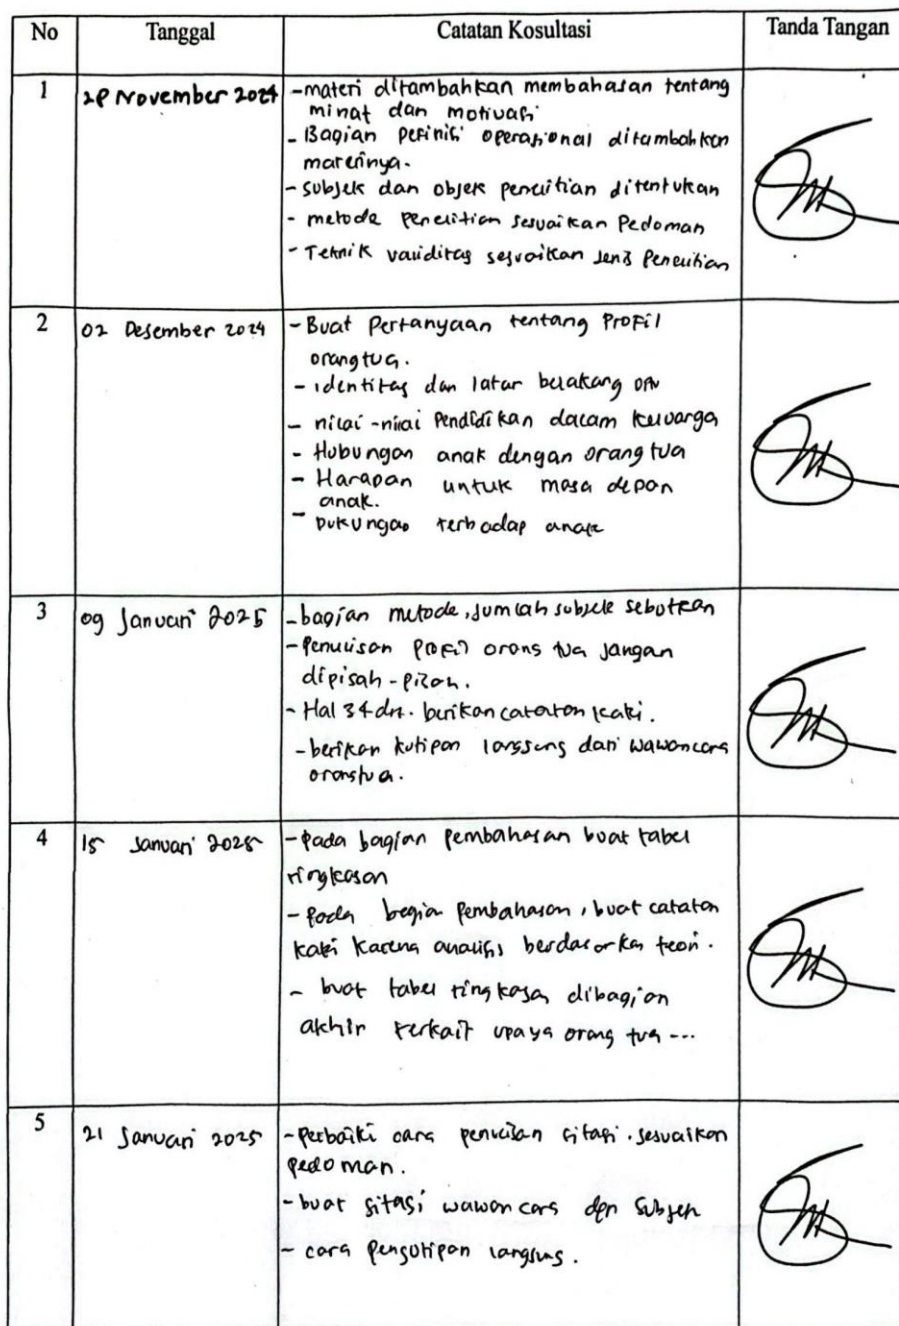 No Tanggal Catatan Kosultasi Tanda Tangan
1 28 November 2024 - materi ditambahkan membahasan tentang
minat dan motivasi
- Bagian Definisi operasional ditambahkan
materinya.
- subjek dan objek penelitian ditentukan
- metode penelitian sesuaikan Pedoman
- Teknik validitas sesuaikan Jenis Penelitian
2 02 Desember 2024 - Buat Pertanyaan tentang Profil
orang tua.
- identitas dan latar belakang
- nilai-nilai Pendidikan dalam keluarga
- Hubungan anak dengan orang tua
- Harapan untuk masa depan
anak.
- Dukungan terhadap anak
3 09 Januari 2025 - bagian metode, jumlah subjek sebutkan
- Penulisan profil orang tua jangan
dipisah-pisah.
- Hal 34 dst. berikan catatan kaki.
- berikan kutipan langsung dari wawancara
orang tua.
4 15 Januari 2025 - Pada bagian pembahasan buat tabel
ringkasan
- Pada bagian Pembahasan, buat catatan
kaki karena analisis berdasarkan teori.
- buat tabel ringkasan dibagian
akhir terkait upaya orang tua ...
5 21 Januari 2025 - Perbaiki cara penulisan sitasi. sesuaikan
pedoman.
- buat sitasi wawancara dgn Subjek
- cara pengutipan langsung.